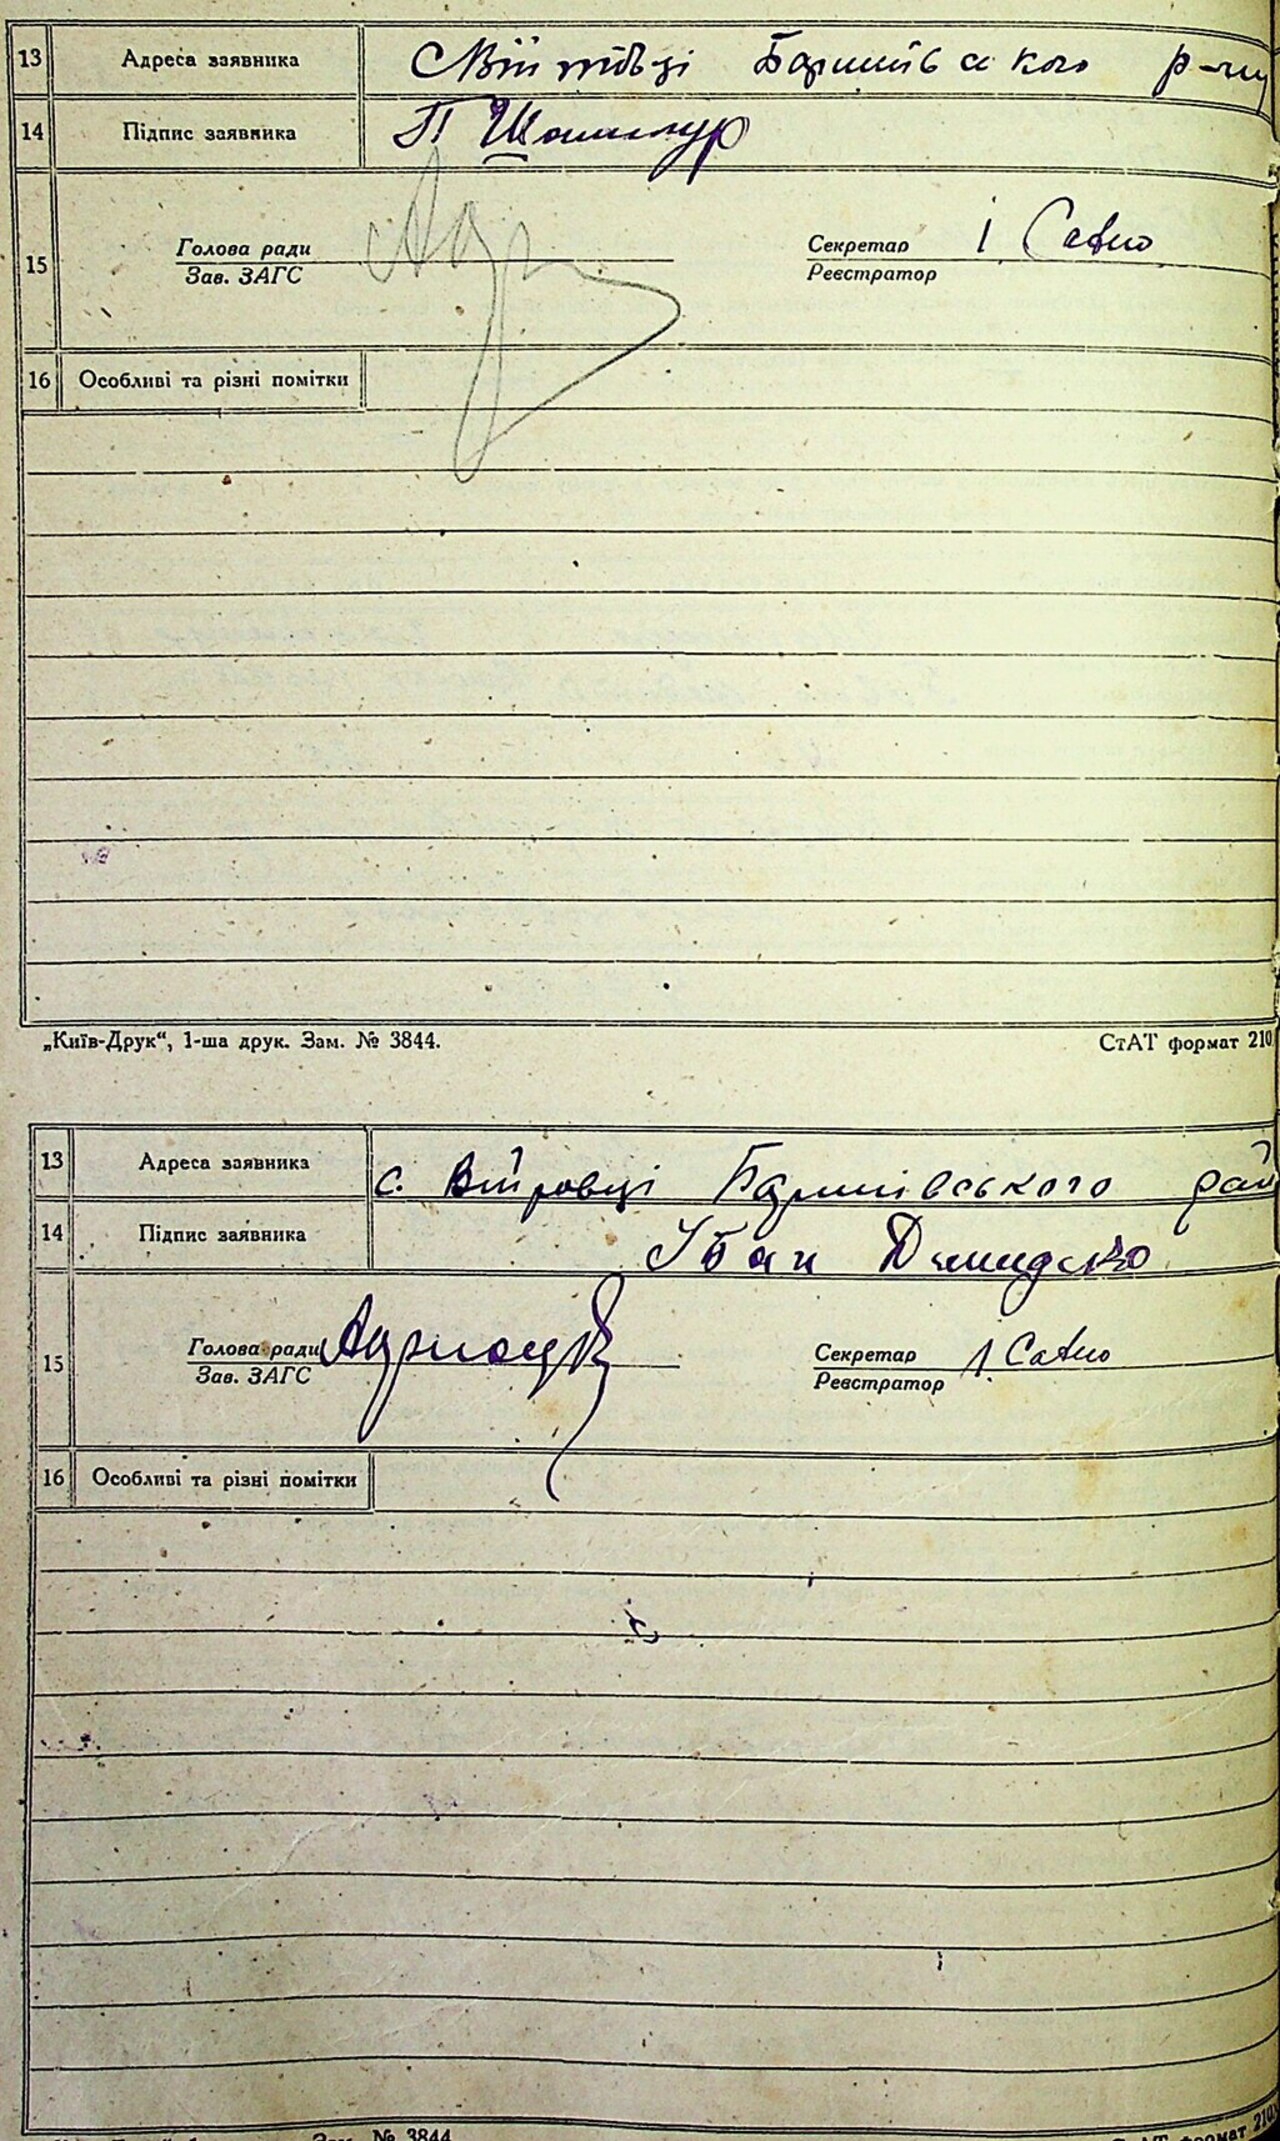 13 Адреса заявника с Війтовці Баришівського р-ну
14 Підпис заявника П
15 Голова ради Секретар І Савчо
Зав. ЗАГС Реєстратор
16 Особливі та різні помітки
„Київ-Друк“, 1-ша друк. Зам. № 3844. СтАТ формат 210
13 Адреса заявника с. Баришівського рай
14 Підпис заявника Іван
15 Голова ради Секретар І.
Зав. ЗАГС Реєстратор
16 Особливі та різні помітки
Зам. № 3844 формат 210